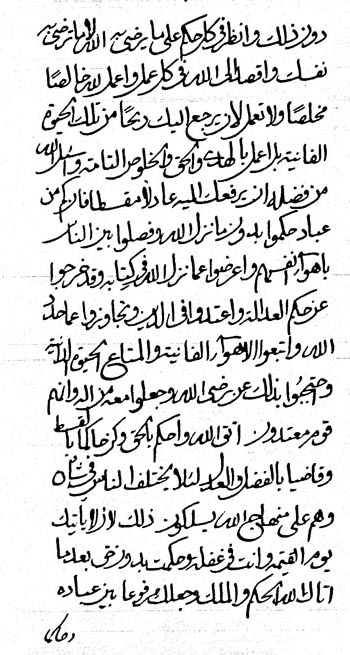 دون ذلك وانظر فى كل حكم على ما يرضى به الله لا ما ترضى به
نفسك واقصد الى الله فى كل عمل واعمل لله خالصًا
مخلصًا ولا تعمل لان يرجع اليك ربحًا من تلك الحيوة
الفانية بل اعمل بالهدى والحق والخلوص التامة واسئل الله
من فضله ان يرفعك اليه عادلًا مقسطا فان كم من
عباد حكموا بدون ما نزل الله وفصلوا بين الناس
باهواء انفسهم واعرضوا عما نزل الله فى كتابه وقد خرجوا
عن حكم العدالة واعتدوا فى الدين وتجاوزوا عما حدد
الله واتبعوا الاهواء الفانية والمتاع الحيوة الدنية
واحتجبوا بذلك عن رضى الله وجعلوا معه من اله وانهم
قوم معتدون اتق الله واحكم بالحق وكن حاكما بالقسط
وقاضيا بالفضل والعدل لئلا يختلف الناس فى شئ
وهم على منهاج الله يسلكون ذلك لان لا ياتيك
يوم القيمة وانت فى غفلة وحكمت بدون حق بعد ما
اتاك الله الحكم والملك وجعلك مرفوعا بين عباده
وحاكما